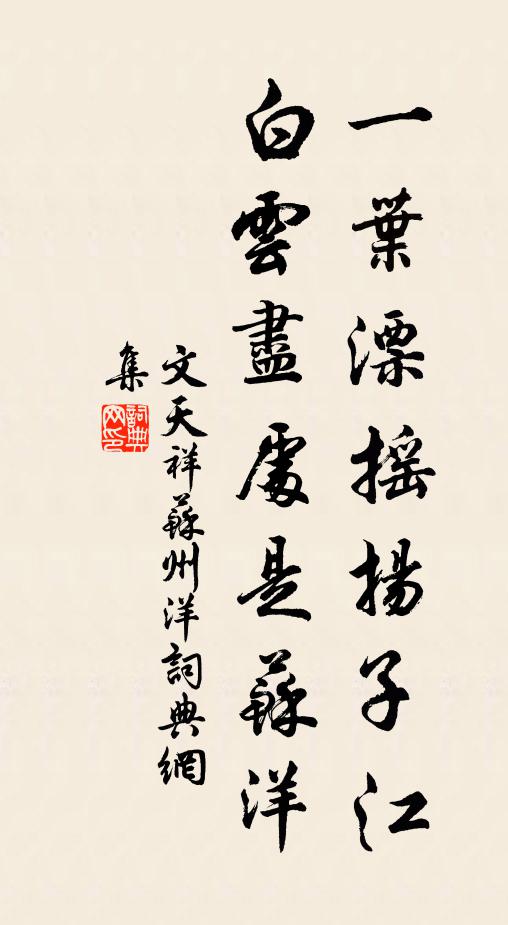 一葉漂摇揚子江
白雲盡處是蘇洋
文天祥蘇州洋詞典網
集
詞典网印